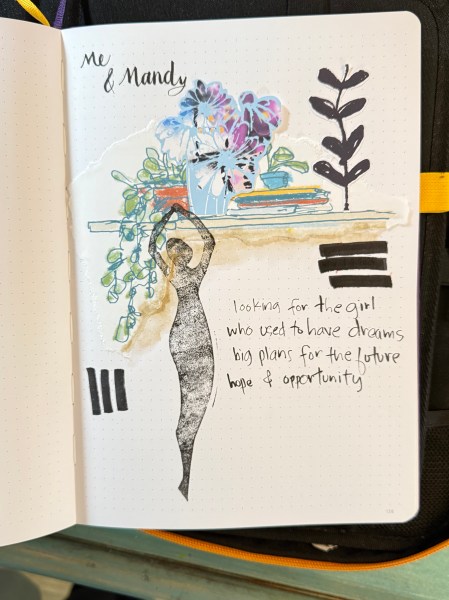 Me
& Mandy
looking for the girl
who used to have dreams
big plans for the future
hope & opportunity